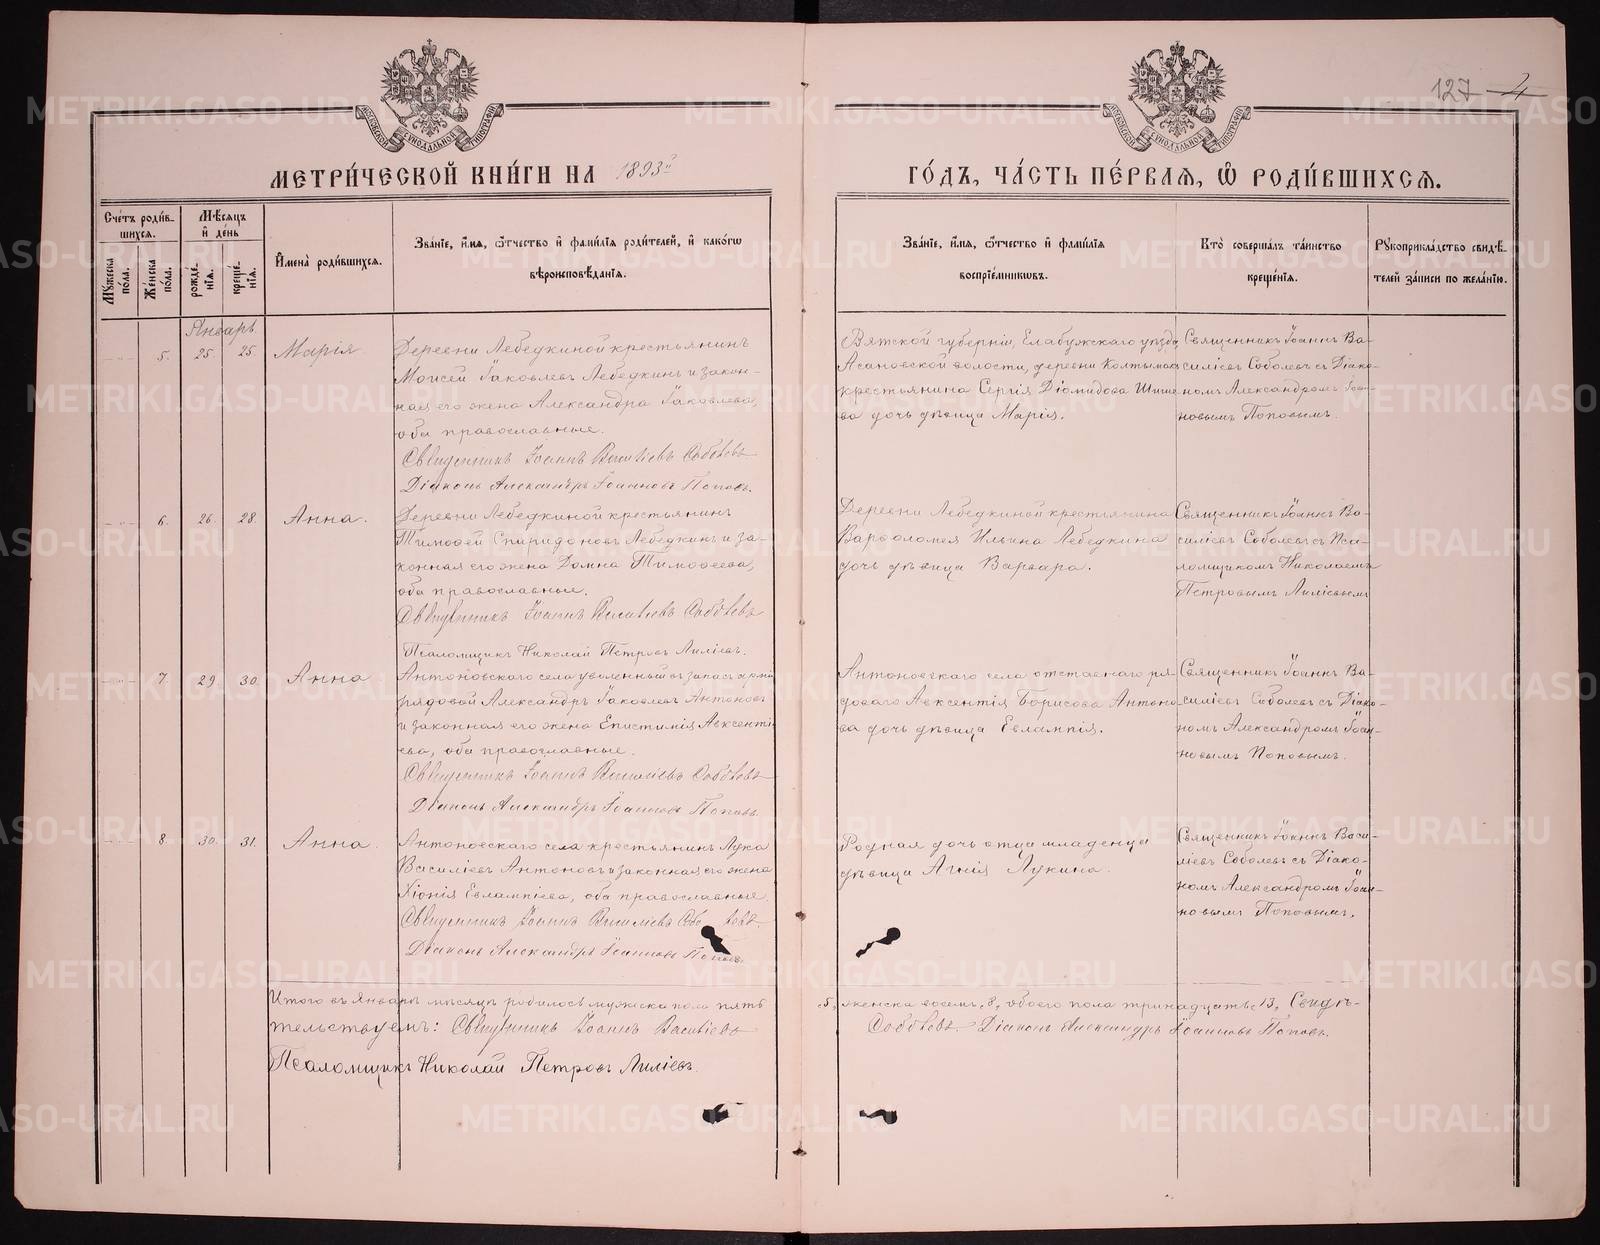 127 4
МОСКОВСКОЙ СѴНОДАЛЬНОЙ ТИПОГРАФІИ
МОСКОВСКОЙ СѴНОДАЛЬНОЙ ТИПОГРАФІИ
МЕТРИ́ЧЕСКОЙ КНИ́ГИ НА 1893й
ГО́ДЪ, ЧА́СТЬ ПЕ́РВАЯ, Ѡ РОДИ́ВШИХСЯ.
Сче́тъ роди́в-
шихся.
Мꙋ́жеска по́ла.
Же́нска по́ла.
Мѣ́сяцъ
и҆ де́нь
рожде́-
нїя.
креще́-
нїя.
И҆мена̀ роди́вшихся.
Зва́нїе, и҆́мя, ѻ҆́тчество и҆ фами́лїя роди́телей, и҆ како́гѡ
вѣроисповѣ́данїя.
Зва́нїе, и҆́мя, ѻ҆́тчество и҆ фами́лїя
воспрїе́мниковъ.
Кто̀ соверша́лъ та́инство
креще́нїя.
Рꙋкоприкла́дство свидѣ́-
телей за́писи по жела́нїю.
Январь
5. 25. 25. Марія
Деревни Лебедкиной крестьянинъ
Моисей Іаковлевъ Лебедкинъ и закон-
ная его жена Александра Іаковлева,
оба православные.
Священникъ Іоаннъ Василіевъ Соболевъ
Діаконъ Александръ Іоанновъ Поповъ.
Вятской губерніи, Елабужскаго уѣзда,
Асановской волости, деревни Колтымак
крестьянина Сергія Діомидова Шише
ва дочь дѣвица Марія.
Священникъ Іоаннъ Ва-
силіевъ Соболевъ съ Діако-
номъ Александромъ Іоан-
новымъ Поповымъ.
6. 26. 28. Анна.
Деревни Лебедкиной крестьянинъ
Тимоѳей Спиридоновъ Лебедкинъ и за-
конная его жена Домна Тимоѳеева,
оба православные.
Священникъ Іоаннъ Василіевъ Соболевъ
Псаломщикъ Николай Петровъ Лиліевъ.
Деревни Лебедкиной крестьянина
Варѳоломея Ильина Лебедкина
дочь дѣвица Варвара.
Священникъ Іоаннъ Ва-
силіевъ Соболевъ съ Пса-
ломщикомъ Николаемъ
Петровымъ Лиліевымъ
7. 29. 30. Анна
Антоновскаго села уволенный въ запасъ арміи
рядовой Александръ Іаковлевъ Антоновъ
и законная его жена Епистимія Авксенті
ева, оба православные.
Священникъ Іоаннъ Василіевъ Соболевъ
Діаконъ Александръ Іоанновъ Поповъ.
Антоновскаго села отставнаго ря-
доваго Авксентія Борисова Антоно
ва дочь дѣвица Евлампія.
Священникъ Іоаннъ Ва-
силіевъ Соболевъ съ Діако-
номъ Александромъ Іоан-
новымъ Поповымъ.
8. 30. 31. Анна.
Антоновскаго села крестьянинъ Лука
Василіевъ Антоновъ и законная его жена
Хіонія Евлампіева, оба православные.
Священникъ Іоаннъ Василіевъ Соболевъ.
Діаконъ Александръ Іоанновъ Поповъ.
Родная дочь отца младенца
дѣвица Агнія Лукина.
Священникъ Іоаннъ Васи-
ліевъ Соболевъ съ Діако-
номъ Александромъ Іоан-
новымъ Поповымъ.
Итого въ Январѣ мѣсяцѣ родилось мужска пола пять 5, женска восемь, 8, обоего пола тринадцать 13, Свидѣ-
тельствуемъ: Священникъ Іоаннъ Василіевъ Соболевъ. Діаконъ Александръ Іоанновъ Поповъ.
Псаломщикъ Николай Петровъ Лиліевъ.
METRIKI.GASO-URAL.RU